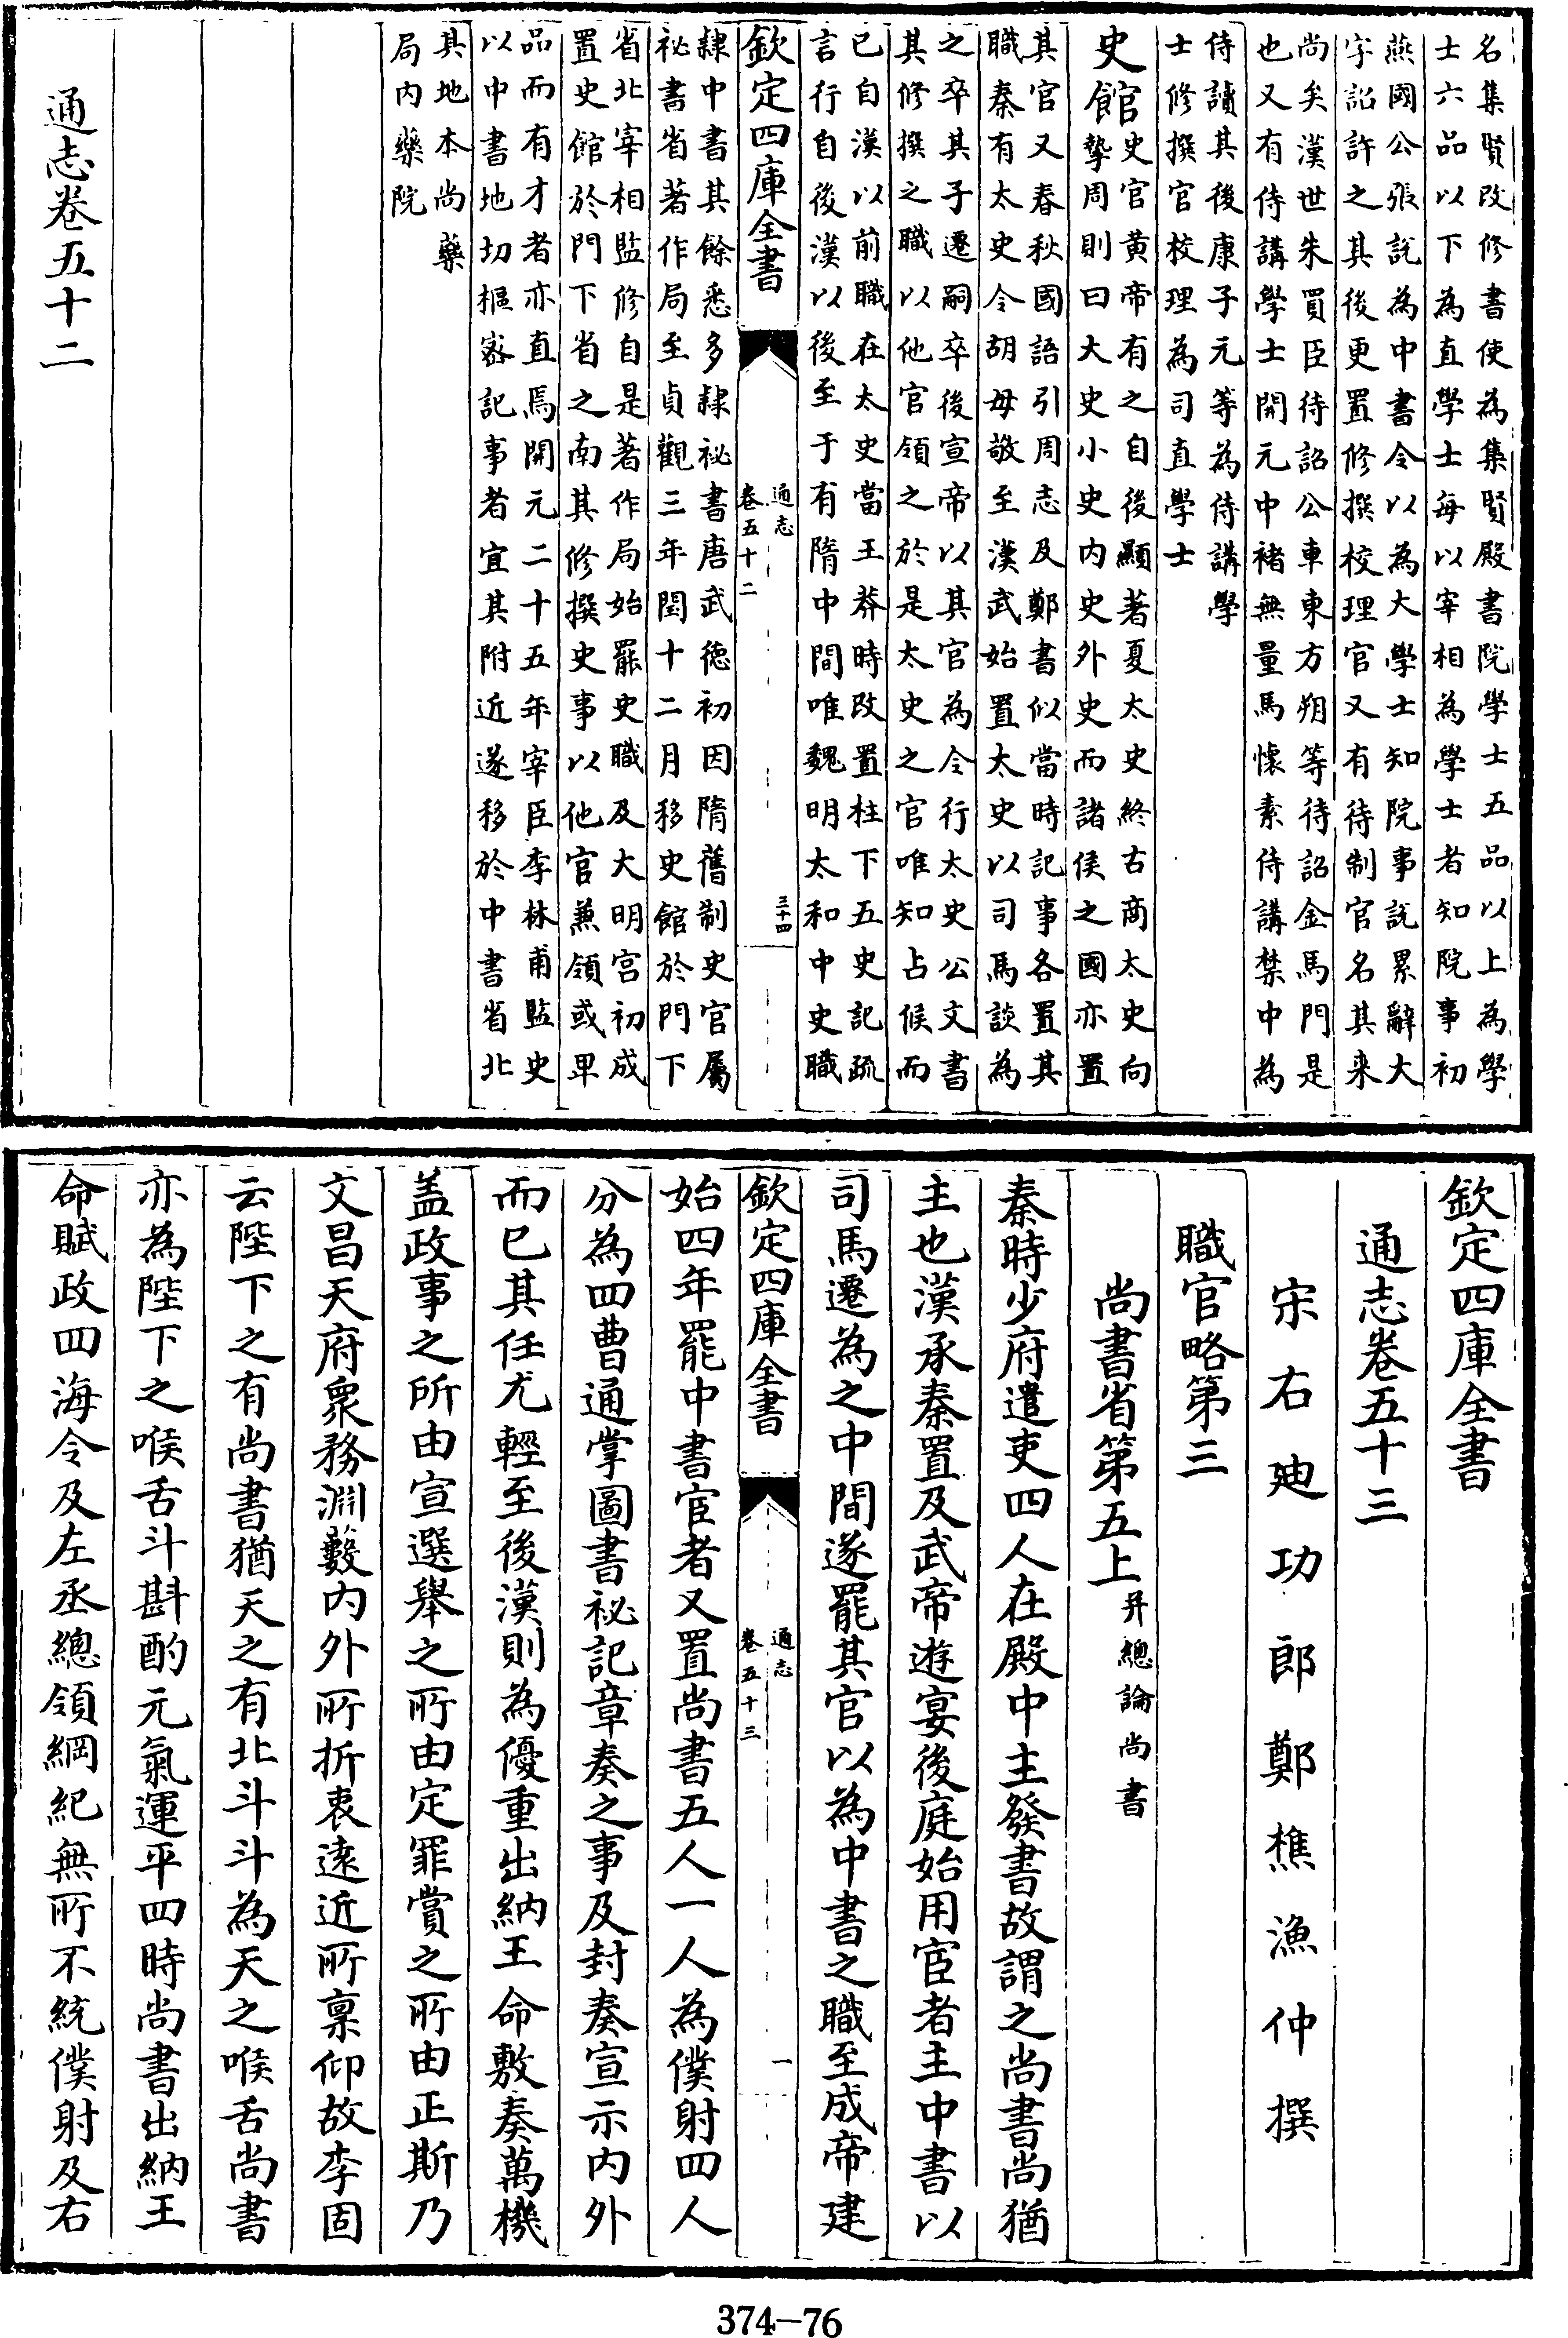 名集賢改修書使為集賢殿書院學士五品以上為學
士六品以下為直學士每以宰相為學士者知院事初
燕國公張說為中書令以為大學士知院事說累辭大
字詔許之其後更置修撰校理官又有待制官名其来
尚矣漢世朱買臣待詔公車東方朔等待詔金馬門是
也又有侍講學士開元中褚無量馬懷素侍講禁中為
侍讀其後康子元等為侍講學
士修撰官校理為司直學士
史館
史官黄帝有之自後顯著夏太史終古商太史向
摯周則曰大史小史内史外史而諸侯之國亦置
其官又春秋國語引周志及鄭書似當時記事各置其
職秦有太史令胡母敬至漢武始置太史以司馬談為
之卒其子遷嗣卒後宣帝以其官為令行太史公文書
其修撰之職以他官領之於是太史之官唯知占候而
已自漢以前職在太史當王莽時改置柱下五史記疏
言行自後漢以後至于有隋中間唯魏明太和中史職
欽定四庫全書
通志
卷五十二
三十四
隷中書其餘悉多隷祕書唐武徳初因隋舊制史官屬
祕書省著作局至貞觀三年閏十二月移史館於門下
省北宰相監修自是著作局始罷史職及大明宫初成
置史館於門下省之南其修撰史事以他官兼領或卑
品而有才者亦直焉開元二十五年宰臣李林甫監史
以中書地切樞宻記事者宜其附近遂移於中書省北
其地本尚藥
局内藥院
通志卷五十二
欽定四庫全書
通志卷五十三
宋右迪功郎鄭樵漁仲撰
職官略第三
尚書省第五上 并總論尚書
秦時少府遣吏四人在殿中主發書故謂之尚書尚猶
主也漢承秦置及武帝遊宴後庭始用宦者主中書以
司馬遷為之中間遂罷其官以為中書之職至成帝建
欽定四庫全書
通志
卷五十三
一
始四年罷中書宦者又置尚書五人一人為僕射四人
分為四曹通掌圖書祕記章奏之事及封奏宣示内外
而已其任尤輕至後漢則為優重出納王命敷奏萬機
盖政事之所由宣選舉之所由定罪賞之所由正斯乃
文昌天府衆務淵藪内外所折衷逺近所禀仰故李固
云陛下之有尚書猶天之有北斗斗為天之喉舌尚書
亦為陛下之喉舌斗斟酌元氣運平四時尚書出納王
命賦政四海令及左丞總領綱紀無所不統僕射及右
374-76